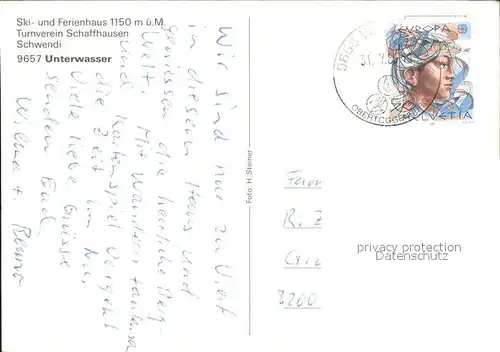 Ski- und Ferienhaus 1150 m ü.M.
Turnverein Schaffhausen
Schwendi
9657 Unterwasser
Wir sind nur zu Viert
in diesem Haus und
geniessen die herrliche Berg-
welt. Mit Wandern
und Kartenspiel vergeht
die Zeit im Nu.
Viele liebe Grüsse
senden Euch
Wilma +
Foto: H. Steiner
EUROPA
HELVETIA
9658
31.
OBERTOGGENBURG
Fam
R. Z
8200
privacy protection
veikkos-archiv